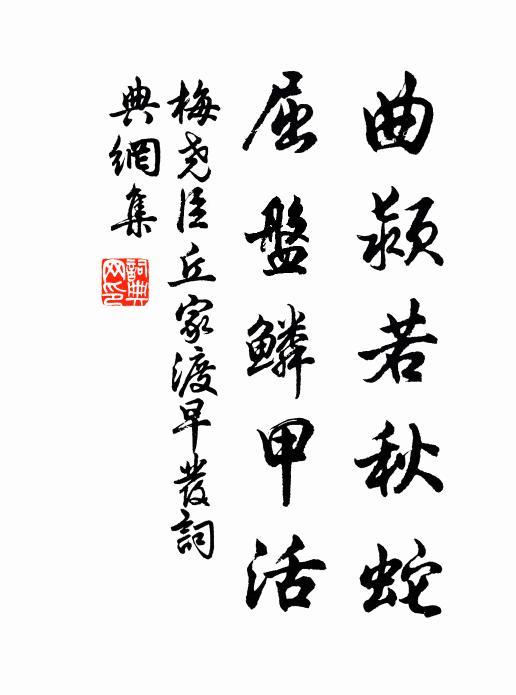 曲潁若秋蛇
屈盤鱗甲活
梅堯臣丘家渡早發詞
典網集
詞典网印